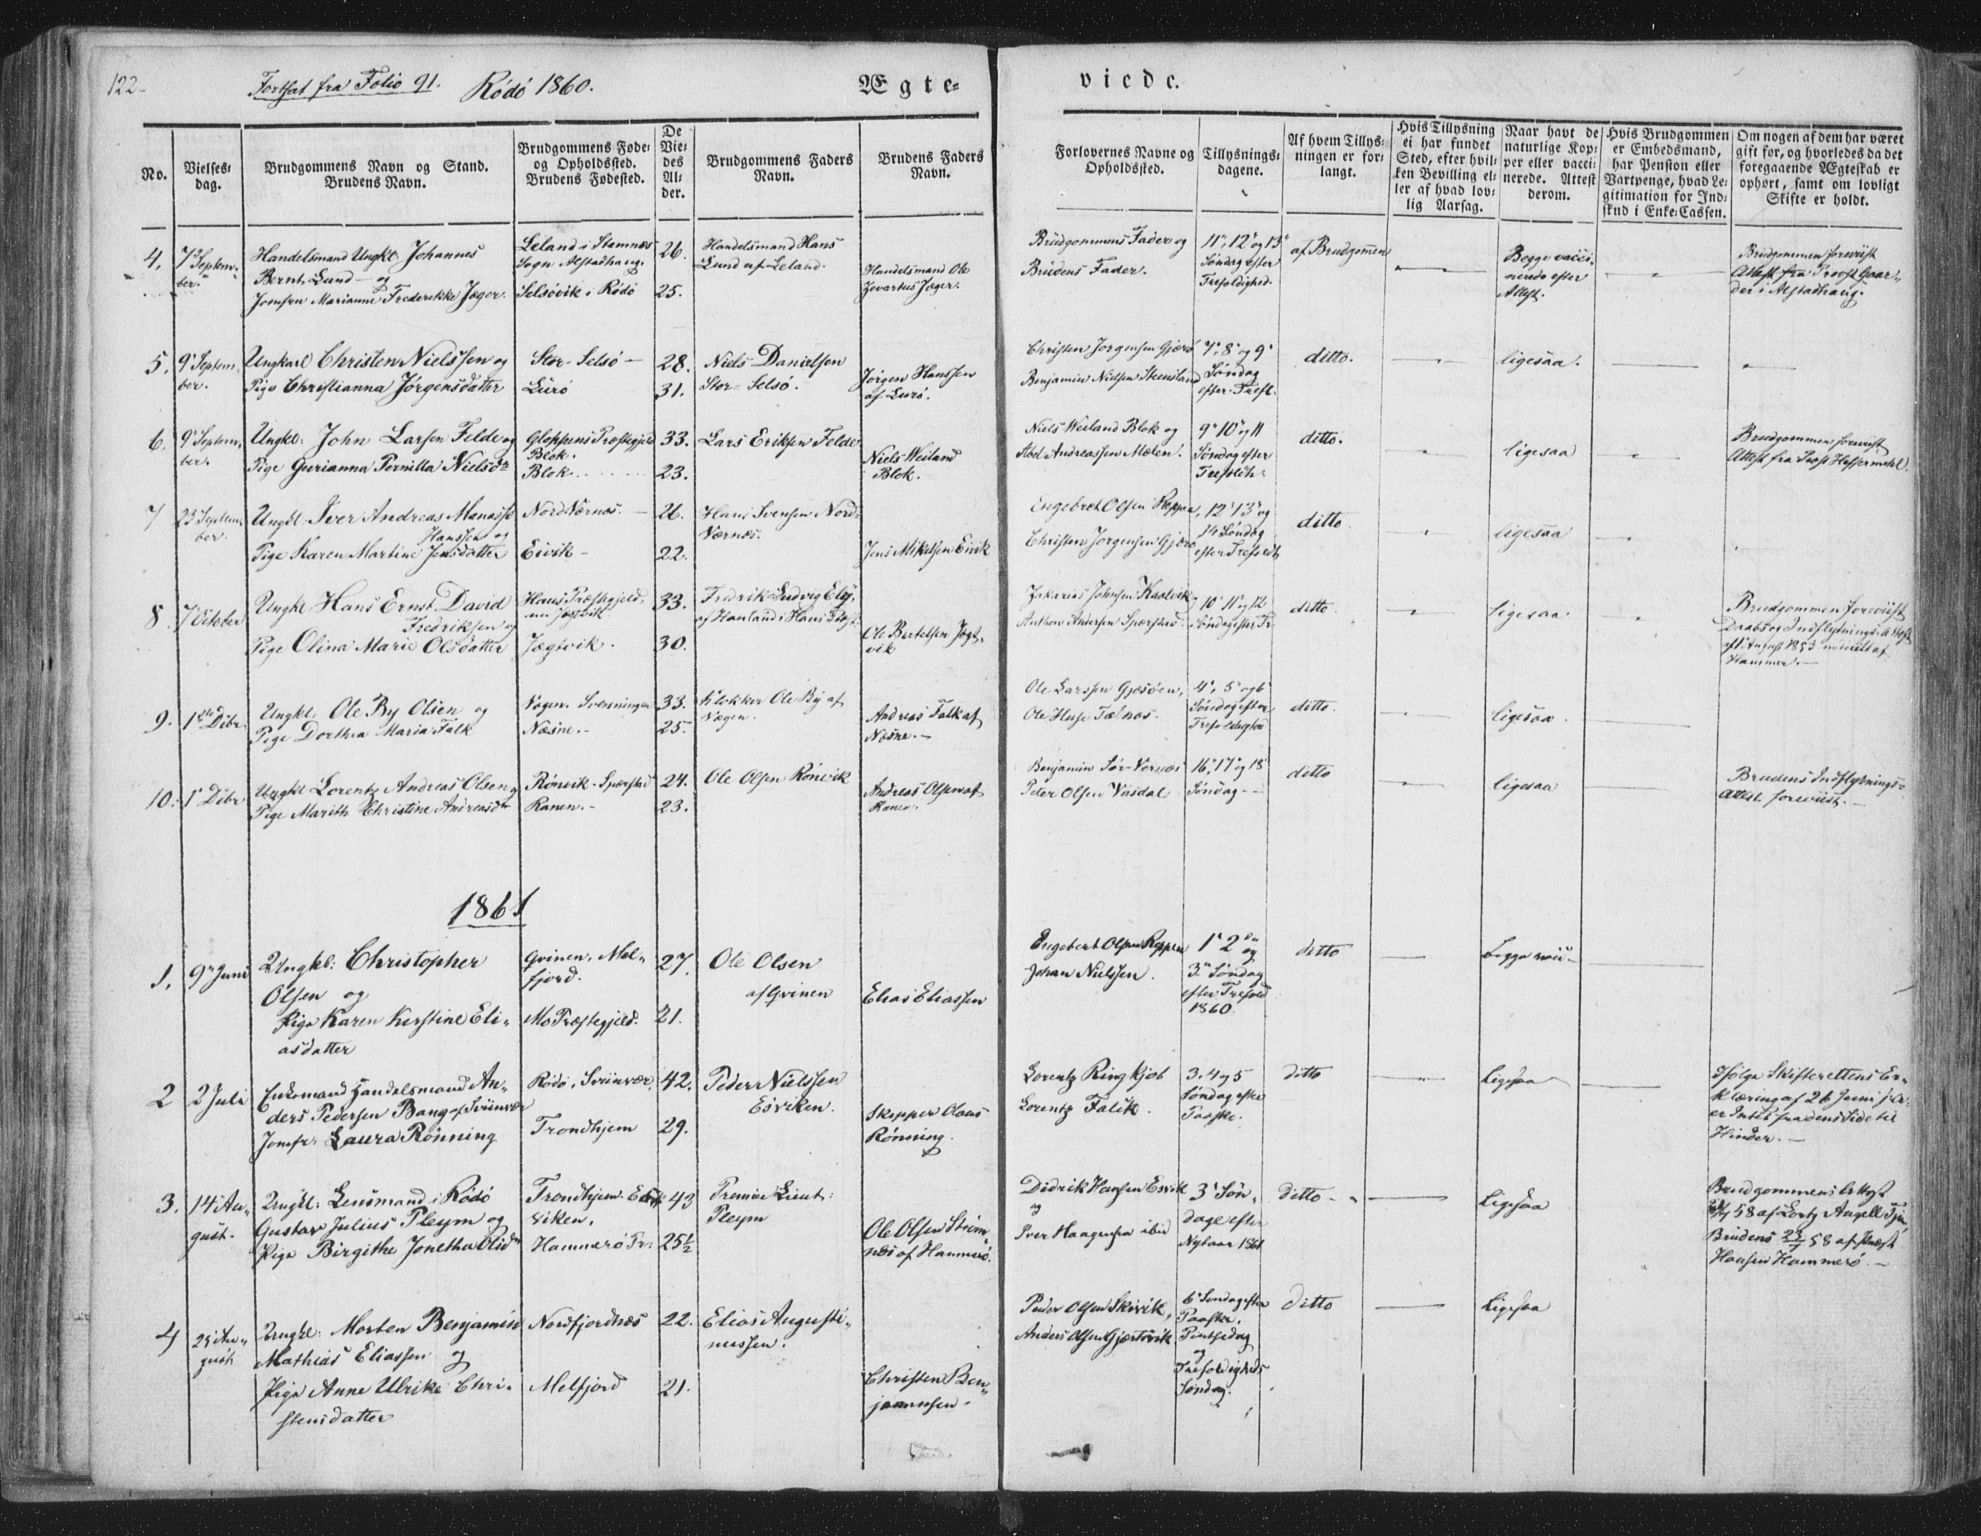 122
Fortsat fra Folio 91. Rødø 1860.
Ægte-
viede.
No.
Vielses-
dag.
Brudgommens Navn og Stand.
Brudens Navn.
Brudgommens Føde-
og Opholdssted.
Brudens Fødested.
De
Vie-
des
Al-
der.
Brudgommens Faders
Navn.
Brudens Faders
Navn.
Forlovernes Navne og
Opholdssted.
Tillysnings-
dagene.
Af hvem Tillys-
ningen er for-
langt.
Hvis Tillysning
ei har fundet
Sted, efter hvil-
ken Bevilling el-
ler af hvad lov-
lig Aarsag.
Naar havt de
naturlige Kop-
per eller vacci-
nerede. Attest
derom.
Hvis Brudgommen
er Embedsmand,
har Pension eller
Vartpenge, hvad Le-
gitimation for Ind-
skud i Enke-Cassen.
Om nogen af dem har været
gift før, og hvorledes da det
foregaaende Ægteskab er
ophørt, samt om lovligt
Skifte er holdt.
4. 7de Septem-
ber.
Handelsmand Ungkl: Johannes
Bernt Lund og
Jomfru Marianne Frederikke Jæger.
Leland i Stamnes
Sogn Alstadhaug.
Selsøvik i Rødø
26.
25.
Handelsmand Hans
Lund af Leland.
Handelsmand Ole
Jæger.
Brudgommens Fader og
Brudens Fader.
11te, 12te og 13de
Søndag efter
Trefoldighed.
af Brudgommen
Begge vacci-
nerede efter
Attest.
Brudgommen foreviist
Attest fra Provst Gaar-
der i Alstadhaug.
5. 9de Septem-
ber.
Ungkarl Christen Nielssen og
Pige Christianna Jørgensdatter
Stor-Selsø
Lurø
28.
31.
Niels Danielsen
Stor-Selsø.
Jørgen Hanssen
af Lurø.
Christen Jørgensen Gjærø
Benjamin Nielsen Stensland
7de, 8de og 9de
Søndag
efter Tref.
ditto.
ligesaa.
6. 9de Septem-
ber.
Ungkl: John Larsen Felde og
Pige Gurianna Pernilla Nielsdr
Gloppens Præstegjeld
Blok.
Blok
33.
23.
Lars Eriksen Felde
Niels Weiland
Blok.
Niels Weiland Blok og
Abel Andreassen Mælen.
9de 10de og 11
Søndag efter
Trefoldh:
ditto.
ligesaa
Brudgommen foreviist
Attest fra Provst Heffermehl.
7 23 Septem-
ber.
Ungkl: Iver Andreas Manasse
Hanssen og
Pige Karen Martine Jensdatter
Nord Værnes.
Eivik
26.
22.
Hans Svensen Nord-
Værnes.
Jens Mikelsen Eivik
Engebret Olsen Reppen,
Christen Jørgensen Gjærø
12te 13de og
14 Søndag
efter Trefoldh
ditto.
ligesaa
8. 7de October
Ungkl Hans Ernst David
Fredriksen og
Pige Olina Marie Olsdatter
Hans Præstegjeld,
nu Jægtvik
Jægtvik.
33.
30.
Fredrik Ludvig
af Hanland i Hans
Ole Bertelsen Jægt-
vik
Zakarias Johnsen Kaalvik
Anthon Andersen Spærstad
10de 11te og 12
Søndag efter Tr
ditto.
ligesaa.
Brudgommen foreviist
Daabs og Indflytnings Attest
af August 1853 af
Hammer.
9. 1ste Dcbr.
Ungkl: Ole By Olsen og
Pige Dorthea Maria Falk
Vogen. Svenningen
Næsne.
33.
25.
Klokker Ole By af
Vogen.
Andreas Falk af
Næsne.
Ole Larssen Gjæsøen,
Ole Huse Tælnæs.
4de, 5te og 6te
Søndag efter
Trefoldighed
ditto.
ligesaa.
10. 1ste Dcbr
Ungkl Lorentz Andreas Olsen og
Pige Marith Christine Andreasdr
Rønvik. Spærstad
Ranen.
24.
23.
Ole Olsen Rønvik
Andreas Olsen af
Ranen.
Benjamin Sør-Vernes
Peder Olsen Vasdal
16de, 17de og 18
Søndag
ditto
ligesaa
Brudens Indflytnings-
Attest foreviist.
1861
1. 9de Juni
Ungkl: Christopher
Olsen og
Pige Karen Kerstine Eli-
asdatter
Gvinen, Mel-
fjord.
Mo Præstegjeld.
27.
21.
Ole Olsen
af Gvinen
Elias Eliassen
Engebert Olsen Reppen
Johan Nielssen.
1ste 2den og
3die Søndag
efter Trefold
1860.
ditto
Begge
2 2 Juli
Enkemand Handelsmand An-
ders Pedersen Bang af Sviinvær
Jomfr: Laura Rønning
Rødø, Sviinvær.
Trondhjem
42.
29.
Peder Nielssen
Esviken.
Skepper Claus
Rønning.
Lorentz Ringkjøb
Lorentz Falck.
3. 4 og 5
Søndag efter
Paaske.
ditto
Ligesaa
Ifølge Skifterettens Er-
klæring af 26 Juni
er Intet fra dens Side til
Hinder.
3. 14de Au-
gust.
Ungkl: Lensmand i Rødø
Gustav Julius Pleym og
Pige Birgithe Jonetha Olsdr
Trondhjem Es-
viken.
Hammerø Pr:
43
25½
Premier Lieut:
Pleym
Ole Olsen Strøm-
næs af Hammerø.
Didrik Hansen Esvik
og
Iver Haagensen ibid
3de Søn-
dage efter
Nytaar 1861
ditto
Ligesaa
Brudgommens Attest
58 af Angell
Brudens 58 af Præst
Hansen Hammerø.
4 25 Au-
gust
Ungkl: Morten Benjamin
Mathias Eliassen og
Pige Anne Ulrike Chri-
stensdatter
Nordfjordnæs
Melfjord
22.
21.
Elias Augusti-
nussen.
Christen Ben-
jaminsen.
Peder Olsen Skivik,
Anders Olsen Gjærtsvik
6te Søndag efter
Paaske.
Pintsedag
og
Trefoldigheds
Søndag.
ditto
Ligesaa